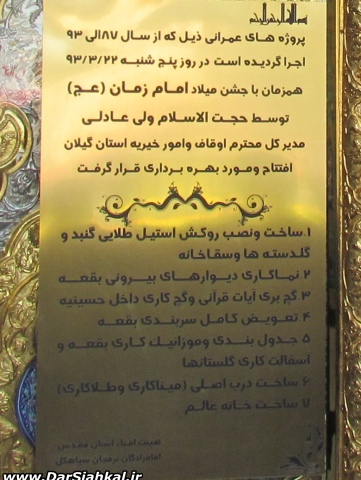 بسم الله الرحمن الرحیم
پروژه های عمرانی ذیل که از سال ۸۷ الی ۹۳
اجرا گردیده است در روز پنج شنبه ۹۳/۳/۲۲
همزمان با جشن میلاد امام زمان (عج)
توسط حجت الاسلام ولی عادلی
مدیر کل محترم اوقاف وامور خیریه استان گیلان
افتتاح ومورد بهره برداری قرار گرفت
۱.ساخت ونصب روکش استیل طلایی گنبد و
گلدسته ها وسقاخانه
۲ نماکاری دیوارهای بیرونی بقعه
۳ گچ بری آیات قرآنی وگچ کاری داخل حسینیه
۴ تعویض کامل سربندی بقعه
۵ جدول بندی وموزائیک کاری بقعه و
اسفالت کاری گلستانها
۶ ساخت درب اصلی (میناکاری وطلاکاری)
۷ ساخت خانه عالم
هیئت امناء آستان مقدس
امامزادگان سیاهکل
www.DarSiahkal.ir